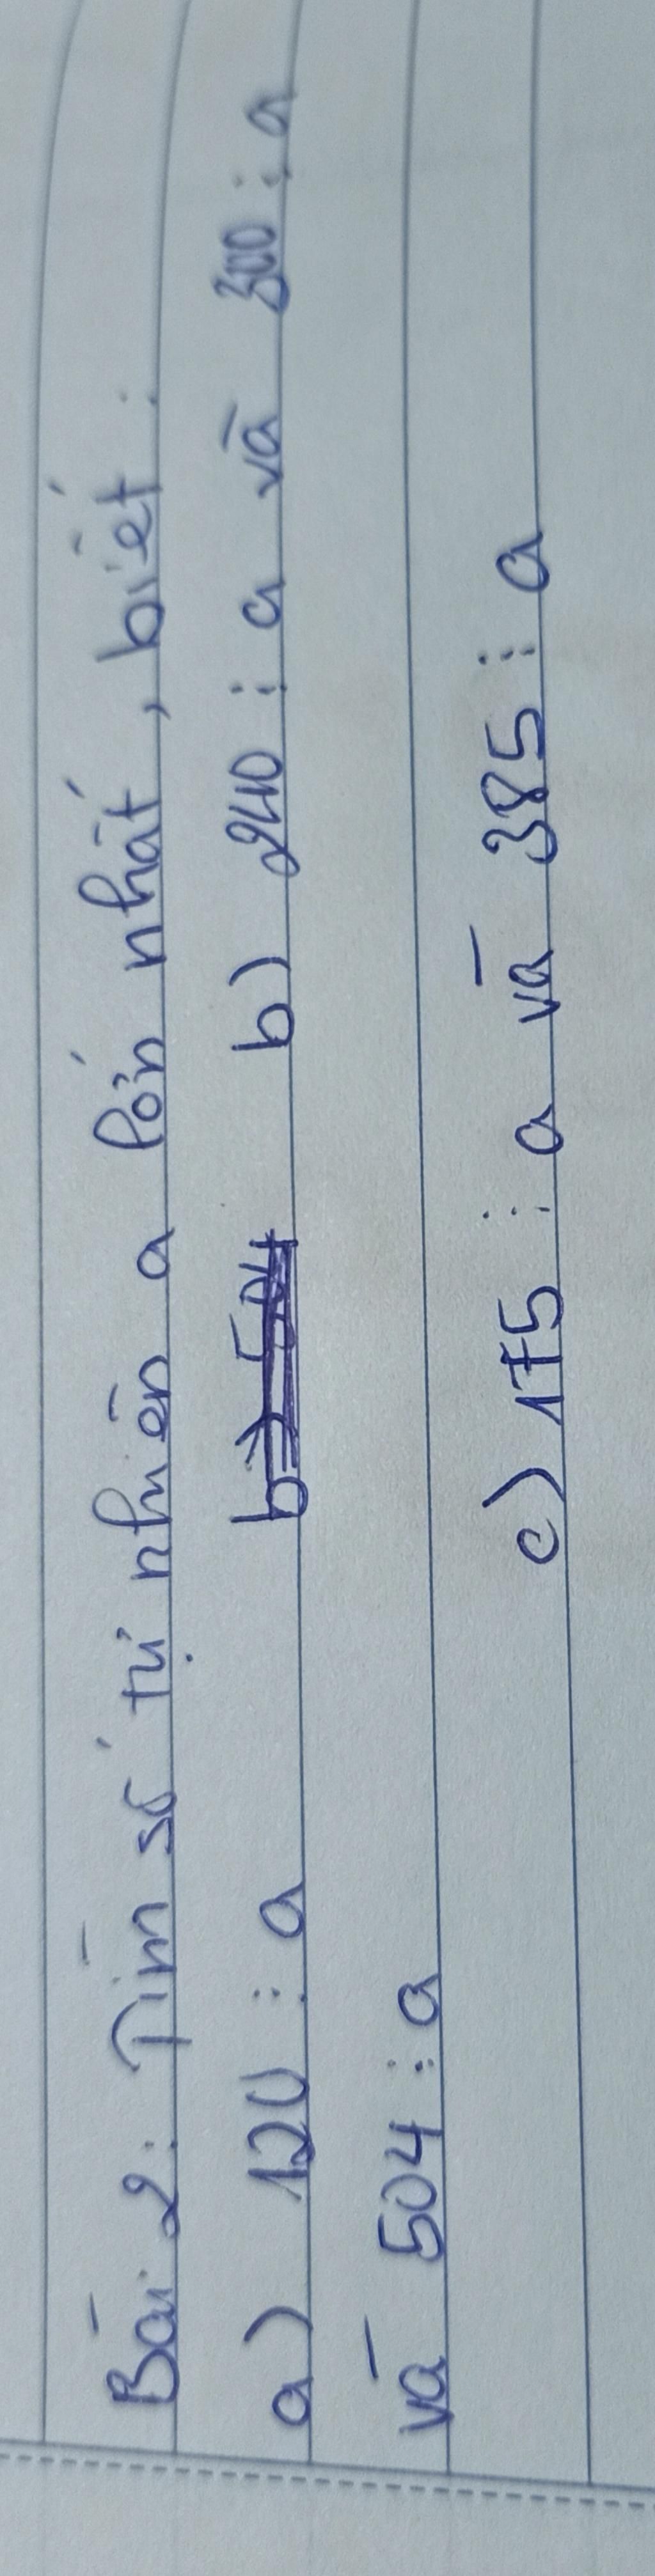 Bài 2. Tìm số tự nhiên a lớn nhất, biết:
a) 120 ⋮ a b) 240 ⋮ a và 300 ⋮ a
và 504 ⋮ a
c) 175 ⋮ a và 385 ⋮ a